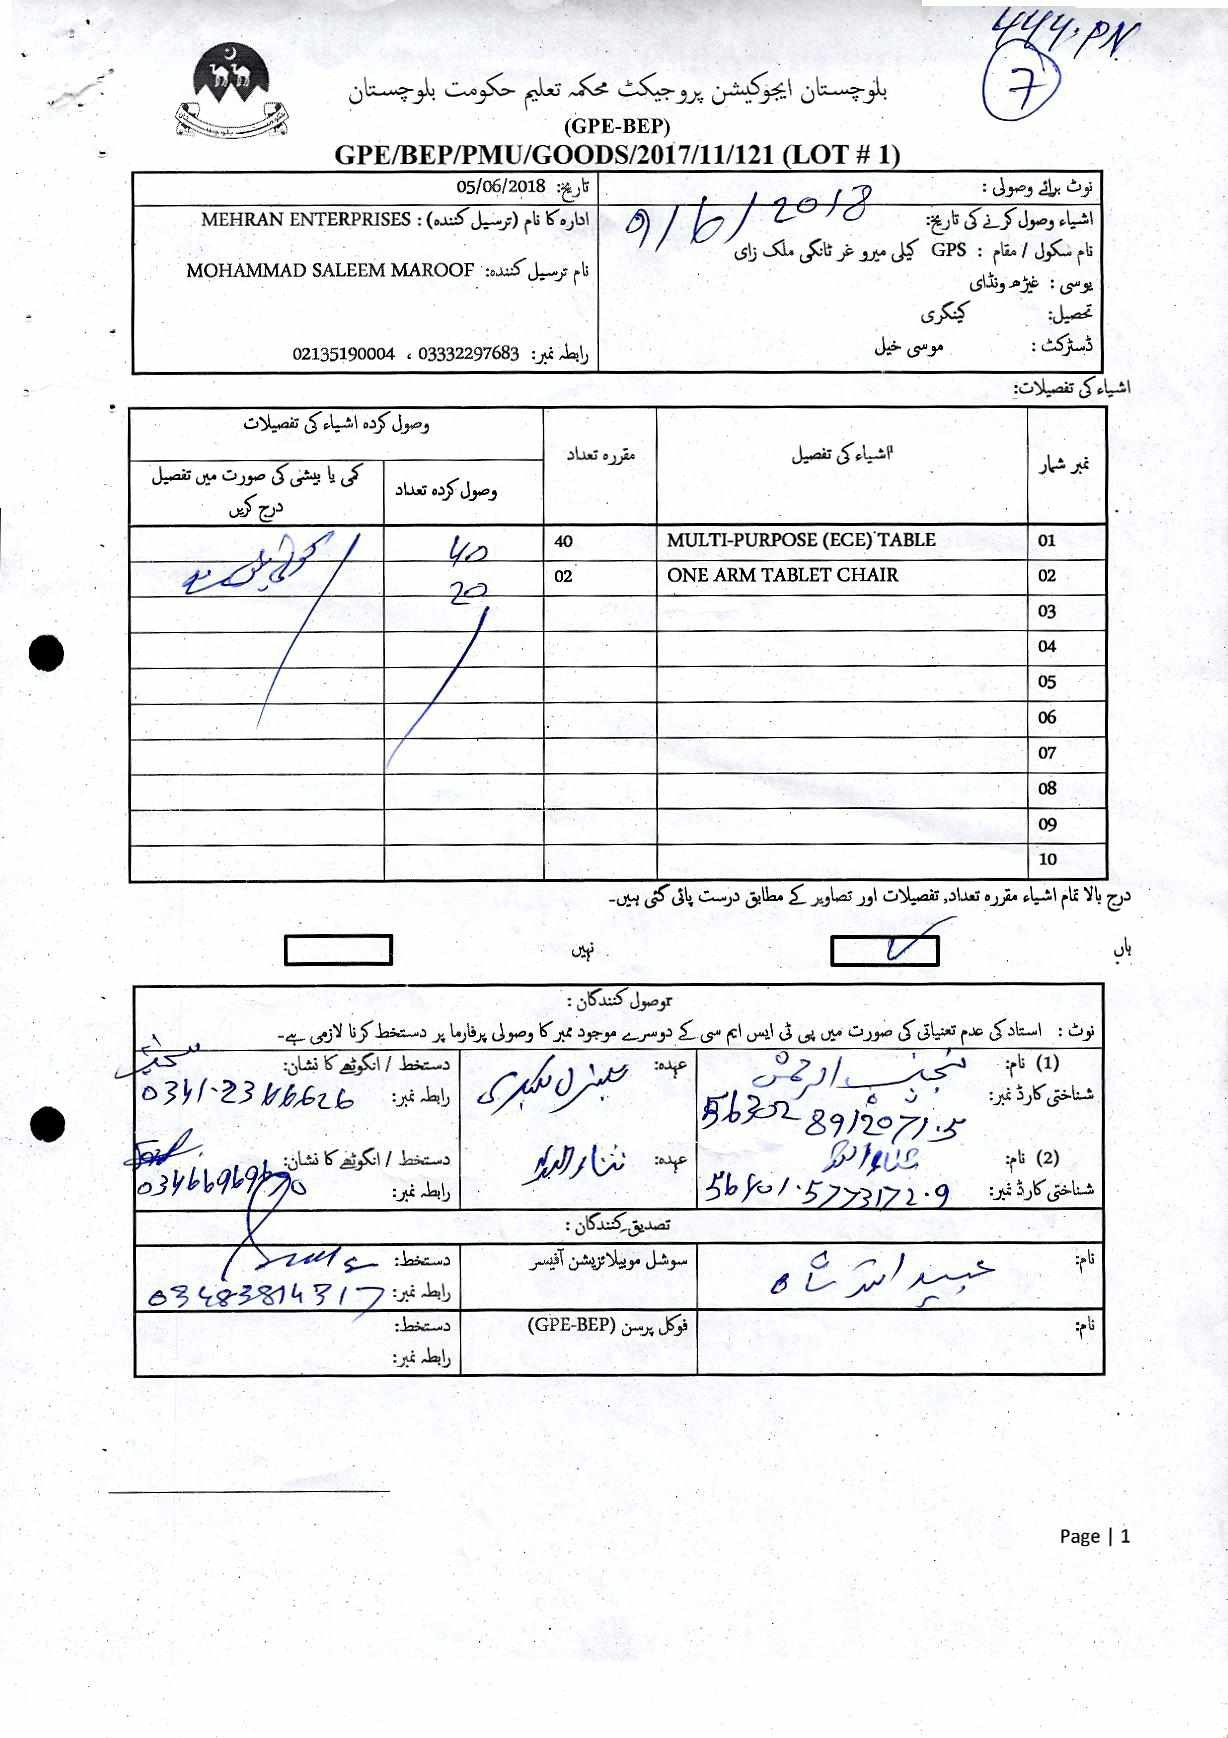 444.PN
7
بلوچستان ایجوکیشن پروجیکٹ محکمہ تعلیم حکومت بلوچستان
(GPE-BEP)
GPE/BEP/PMU/GOODS/2017/11/121 (LOT # 1)
نوٹ برائے وصولی :
اشیاء وصول کرنے کی تاریخ: 9/6/2018
نام سکول / مقام : GPS کیلی میرو غر ٹانگی ملک زای
یوسی : غیڑھ ونڈای
تحصیل: کینگری
ڈسٹرکٹ : موسی خیل
تاریخ: 05/06/2018
ادارہ کا نام (ترسیل کنندہ) : MEHRAN ENTERPRISES
نام ترسیل کنندہ: MOHAMMAD SALEEM MAROOF
رابطہ نمبر: 03332297683 ، 02135190004
اشیاء کی تفصیلات:
نمبر شمار اشیاء کی تفصیل مقررہ تعداد وصول کردہ اشیاء کی تفصیلات
وصول کردہ تعداد کمی یا بیشی کی صورت میں تفصیل درج کریں
01 MULTI-PURPOSE (ECE) TABLE 40 40
02 ONE ARM TABLET CHAIR 02 20
03
04
05
06
07
08
09
10
درج بالا تمام اشیاء مقررہ تعداد, تفصیلات اور تصاویر کے مطابق درست پائی گئی ہیں۔
ہاں ✓ نہیں
وصول کنندگان :
نوٹ : استاد کی عدم تعنیاتی کی صورت میں پی ٹی ایس ایم سی کے دوسرے موجود ممبر کا وصولی پرفارما پر دستخط کرنا لازمی ہے۔
(1) نام: عہدہ: جنرل سیکرٹری دستخط / انگوٹھے کا نشان:
شناختی کارڈ نمبر: 56302 8912071.5 رابطہ نمبر: 0341-2366626
(2) نام: ثناء اللہ عہدہ: ثناء اللہ دستخط / انگوٹھے کا نشان:
شناختی کارڈ نمبر: 56401.5773172.9 رابطہ نمبر:
تصدیق کنندگان :
نام: عبید اللہ شاہ سوشل موبیلائزیشن آفیسر دستخط:
رابطہ نمبر: 03483814317
نام: فوکل پرسن (GPE-BEP) دستخط:
رابطہ نمبر:
Page | 1